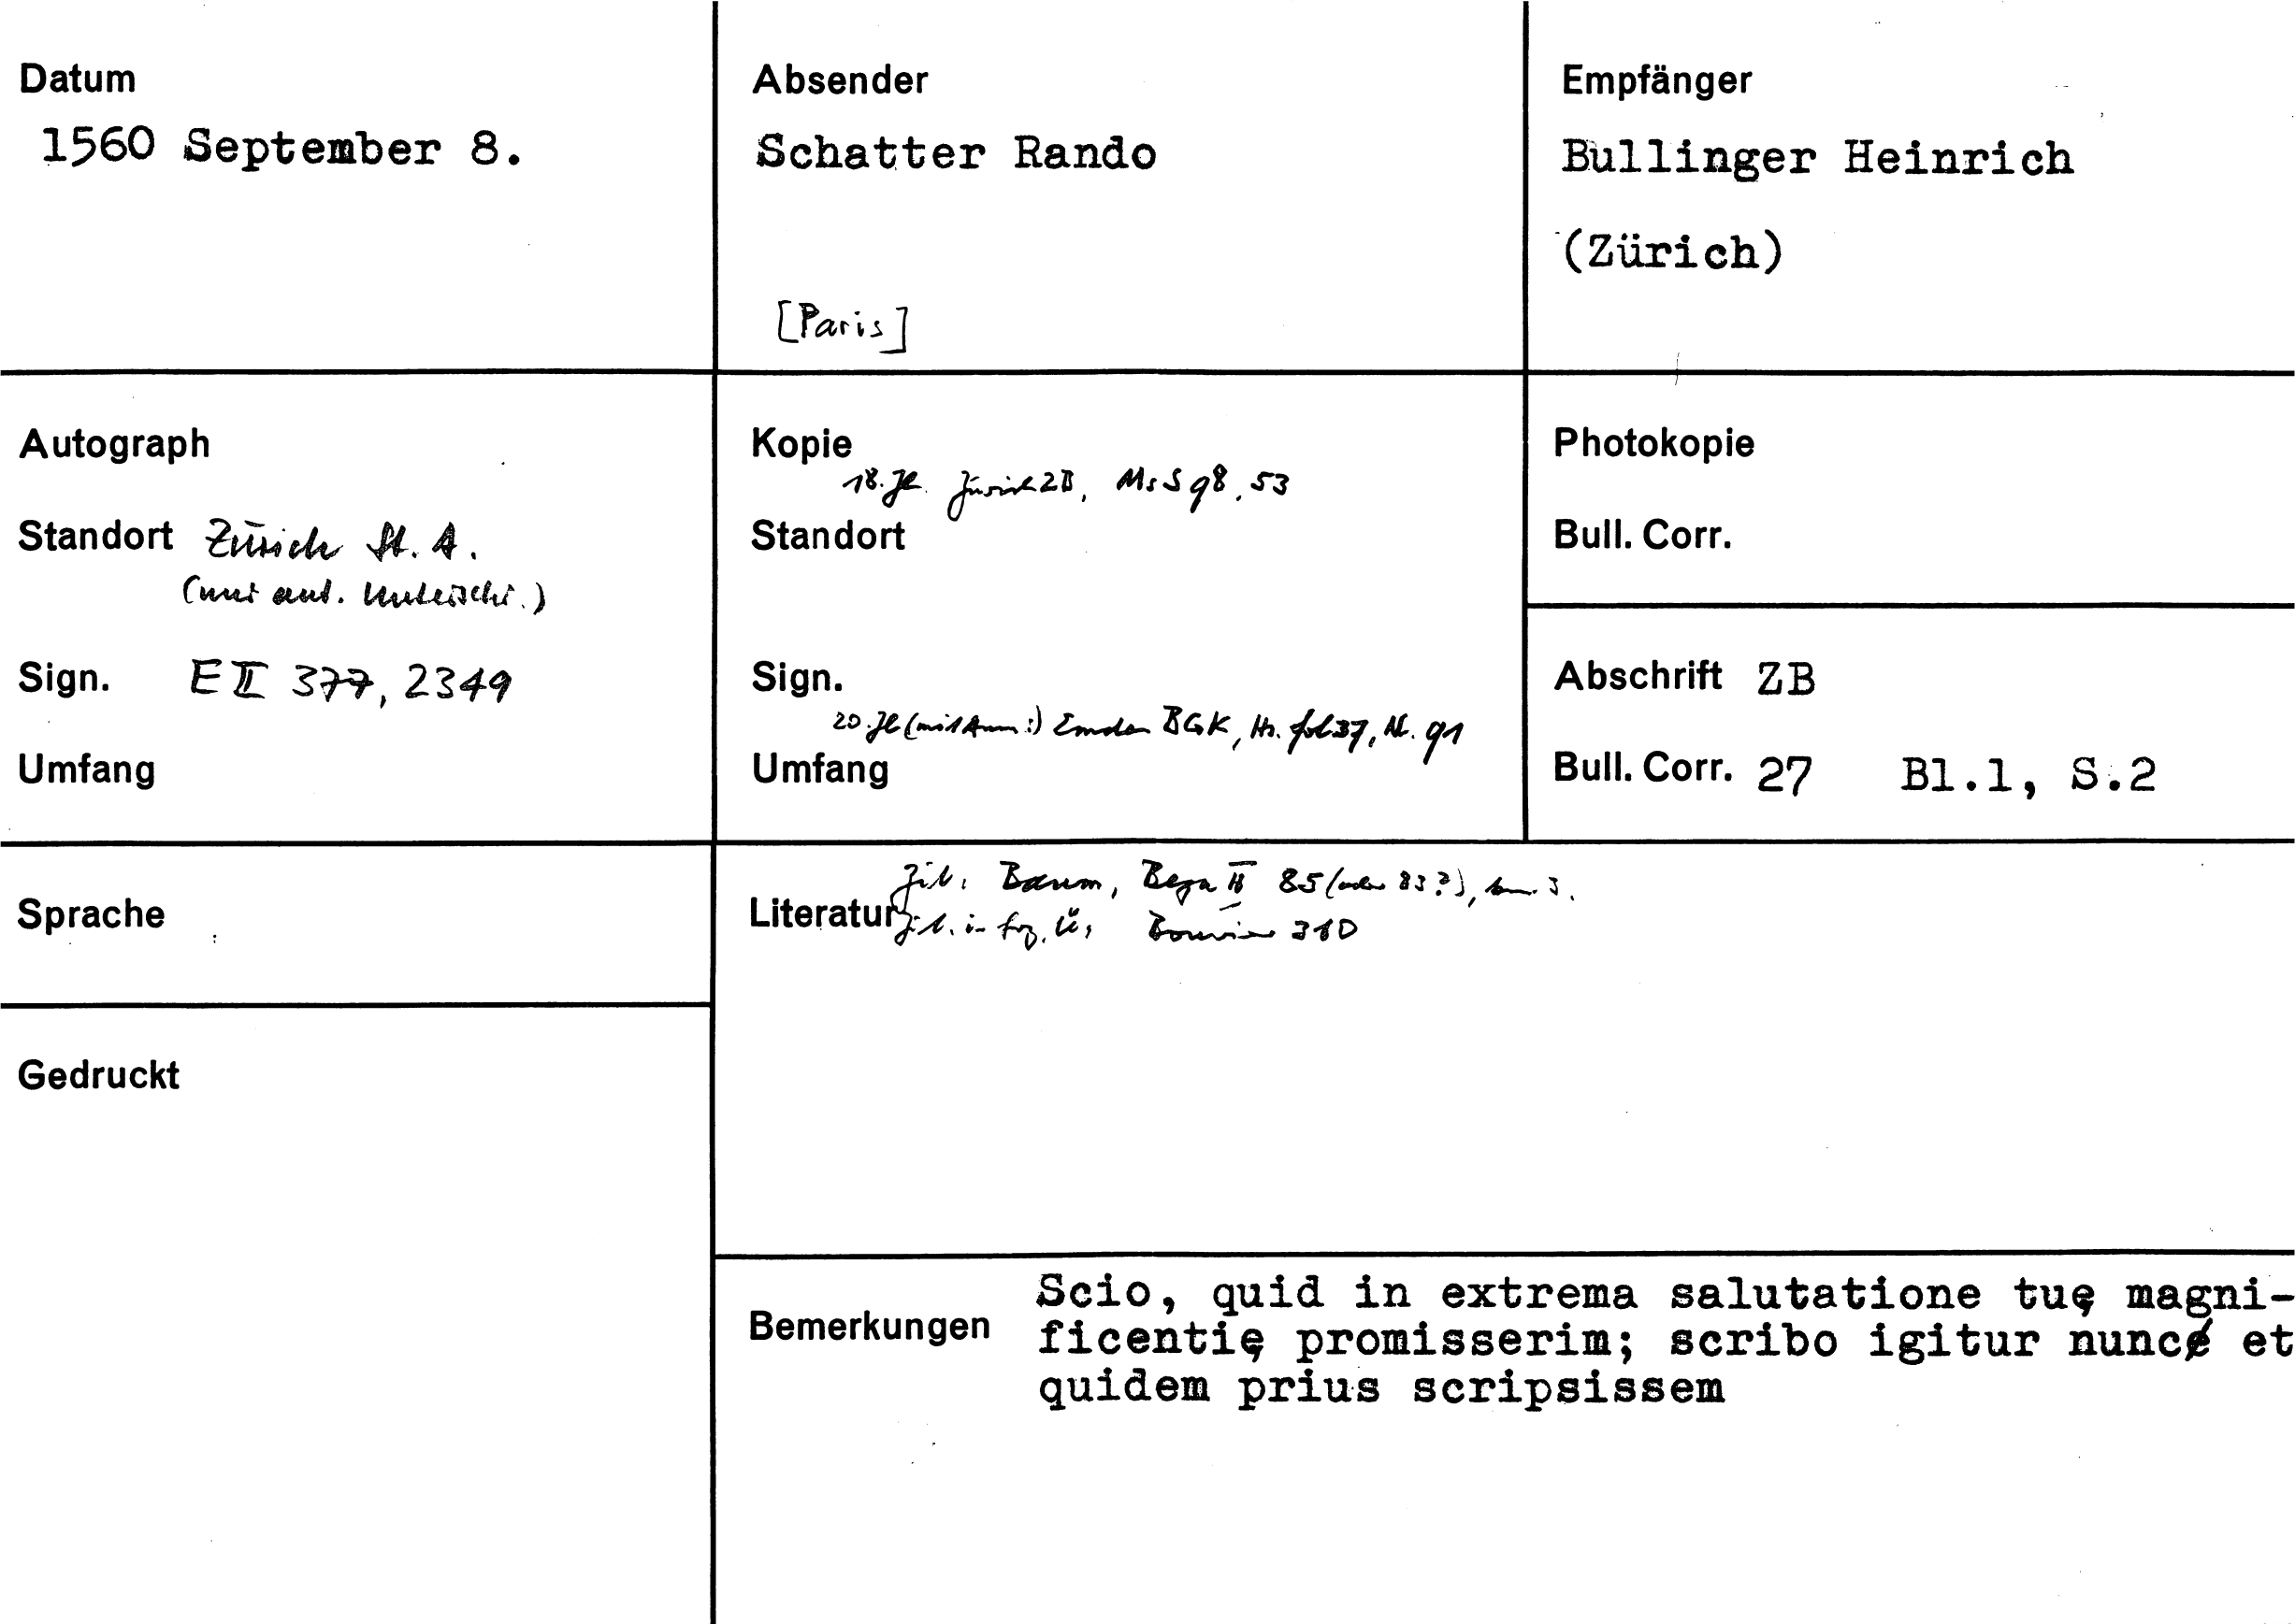 Datum
1560 September 8.
Absender
Schatter Rando
[Paris]
Empfänger
Bullinger Heinrich
(Zürich)
Autograph
Standort Zürich St. A.
(mit aut. Unterschr.)
Sign. E II 377, 2349
Umfang
Kopie
18. Jh. Zürich ZB, Ms S 98, 53
Standort
Sign.
20. Jh (mit Anm.) Emden BGK, Hs. fol 37, Nr. 91
Umfang
Photokopie
Bull. Corr.
Abschrift ZB
Bull. Corr. 27 Bl.1, S.2
Sprache
Zit. Baum, Beza II 85 (oder 83?), Anm. 3.
Literatur Zit. in frz. Ü, Bouvier 310
Gedruckt
Bemerkungen
Scio, quid in extrema salutatione tuę magni-
ficentię promisserim; scribo igitur nunc et
quidem prius scripsissem